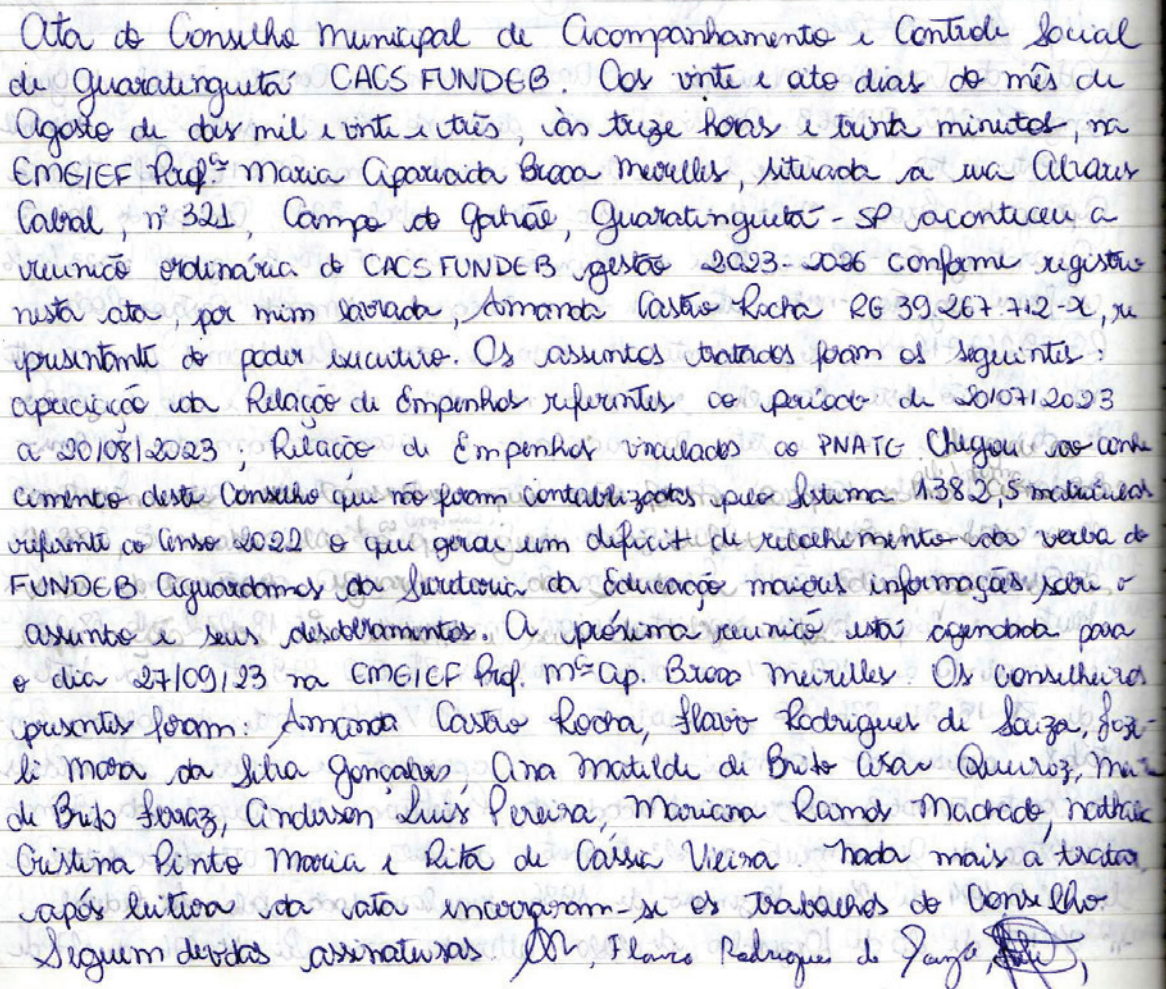 Ata do Conselho Municipal de Acompanhamento e Controle Social
de Guaratinguetá CACS FUNDEB. Aos vinte e oito dias do mês de
Agosto de dois mil e vinte e três, às treze horas e trinta minutos, na
EMEIEF Profª Maria Aparecida Broca Meirelles, situada a rua Alvares
Cabral, nº 321, Campo do Galvão, Guaratinguetá - SP aconteceu a
reunião ordinária do CACS FUNDEB gestão 2023-2026 conforme registro
nesta ata, por mim lavrada, Amanda Castro Rocha RG 39.267.712-X, re
presentante do poder executivo. Os assuntos tratados foram os seguintes:
apreciação da Relação de Empenhos referentes ao período de 20/07/2023
a 20/08/2023; Relação de Empenhos vinculados ao PNATE. Chegou ao conhe
cimento deste Conselho que não foram contabilizadas pelo Sistema 1.382,5 matrículas
referente ao Censo 2022 o que gerou um deficit de recolhimento da verba do
FUNDEB. Aguardamos da Secretaria da Educação maiores informações sobre o
assunto e seus desdobramentos. A próxima reunião está agendada para
o dia 27/09/23 na EMEIEF Prof. Mª Ap. Broca Meirelles. Os conselheiros
presentes foram: Amanda Castro Rocha, Flavio Rodrigues de Souza, Joze-
li Mara da Silva Gonçalves, Ana Matilde de Brito Queiroz,
de Brito Ferraz, Anderson Luis Pereira, Mariana Ramos Machado, Nathalie
Cristina Pinto Maria e Rita de Cassia Vieira. Nada mais a tratar,
após leitura da ata encerraram-se os trabalhos do Conselho.
Seguem devidas assinaturas, Flavio Rodrigues de Souza,